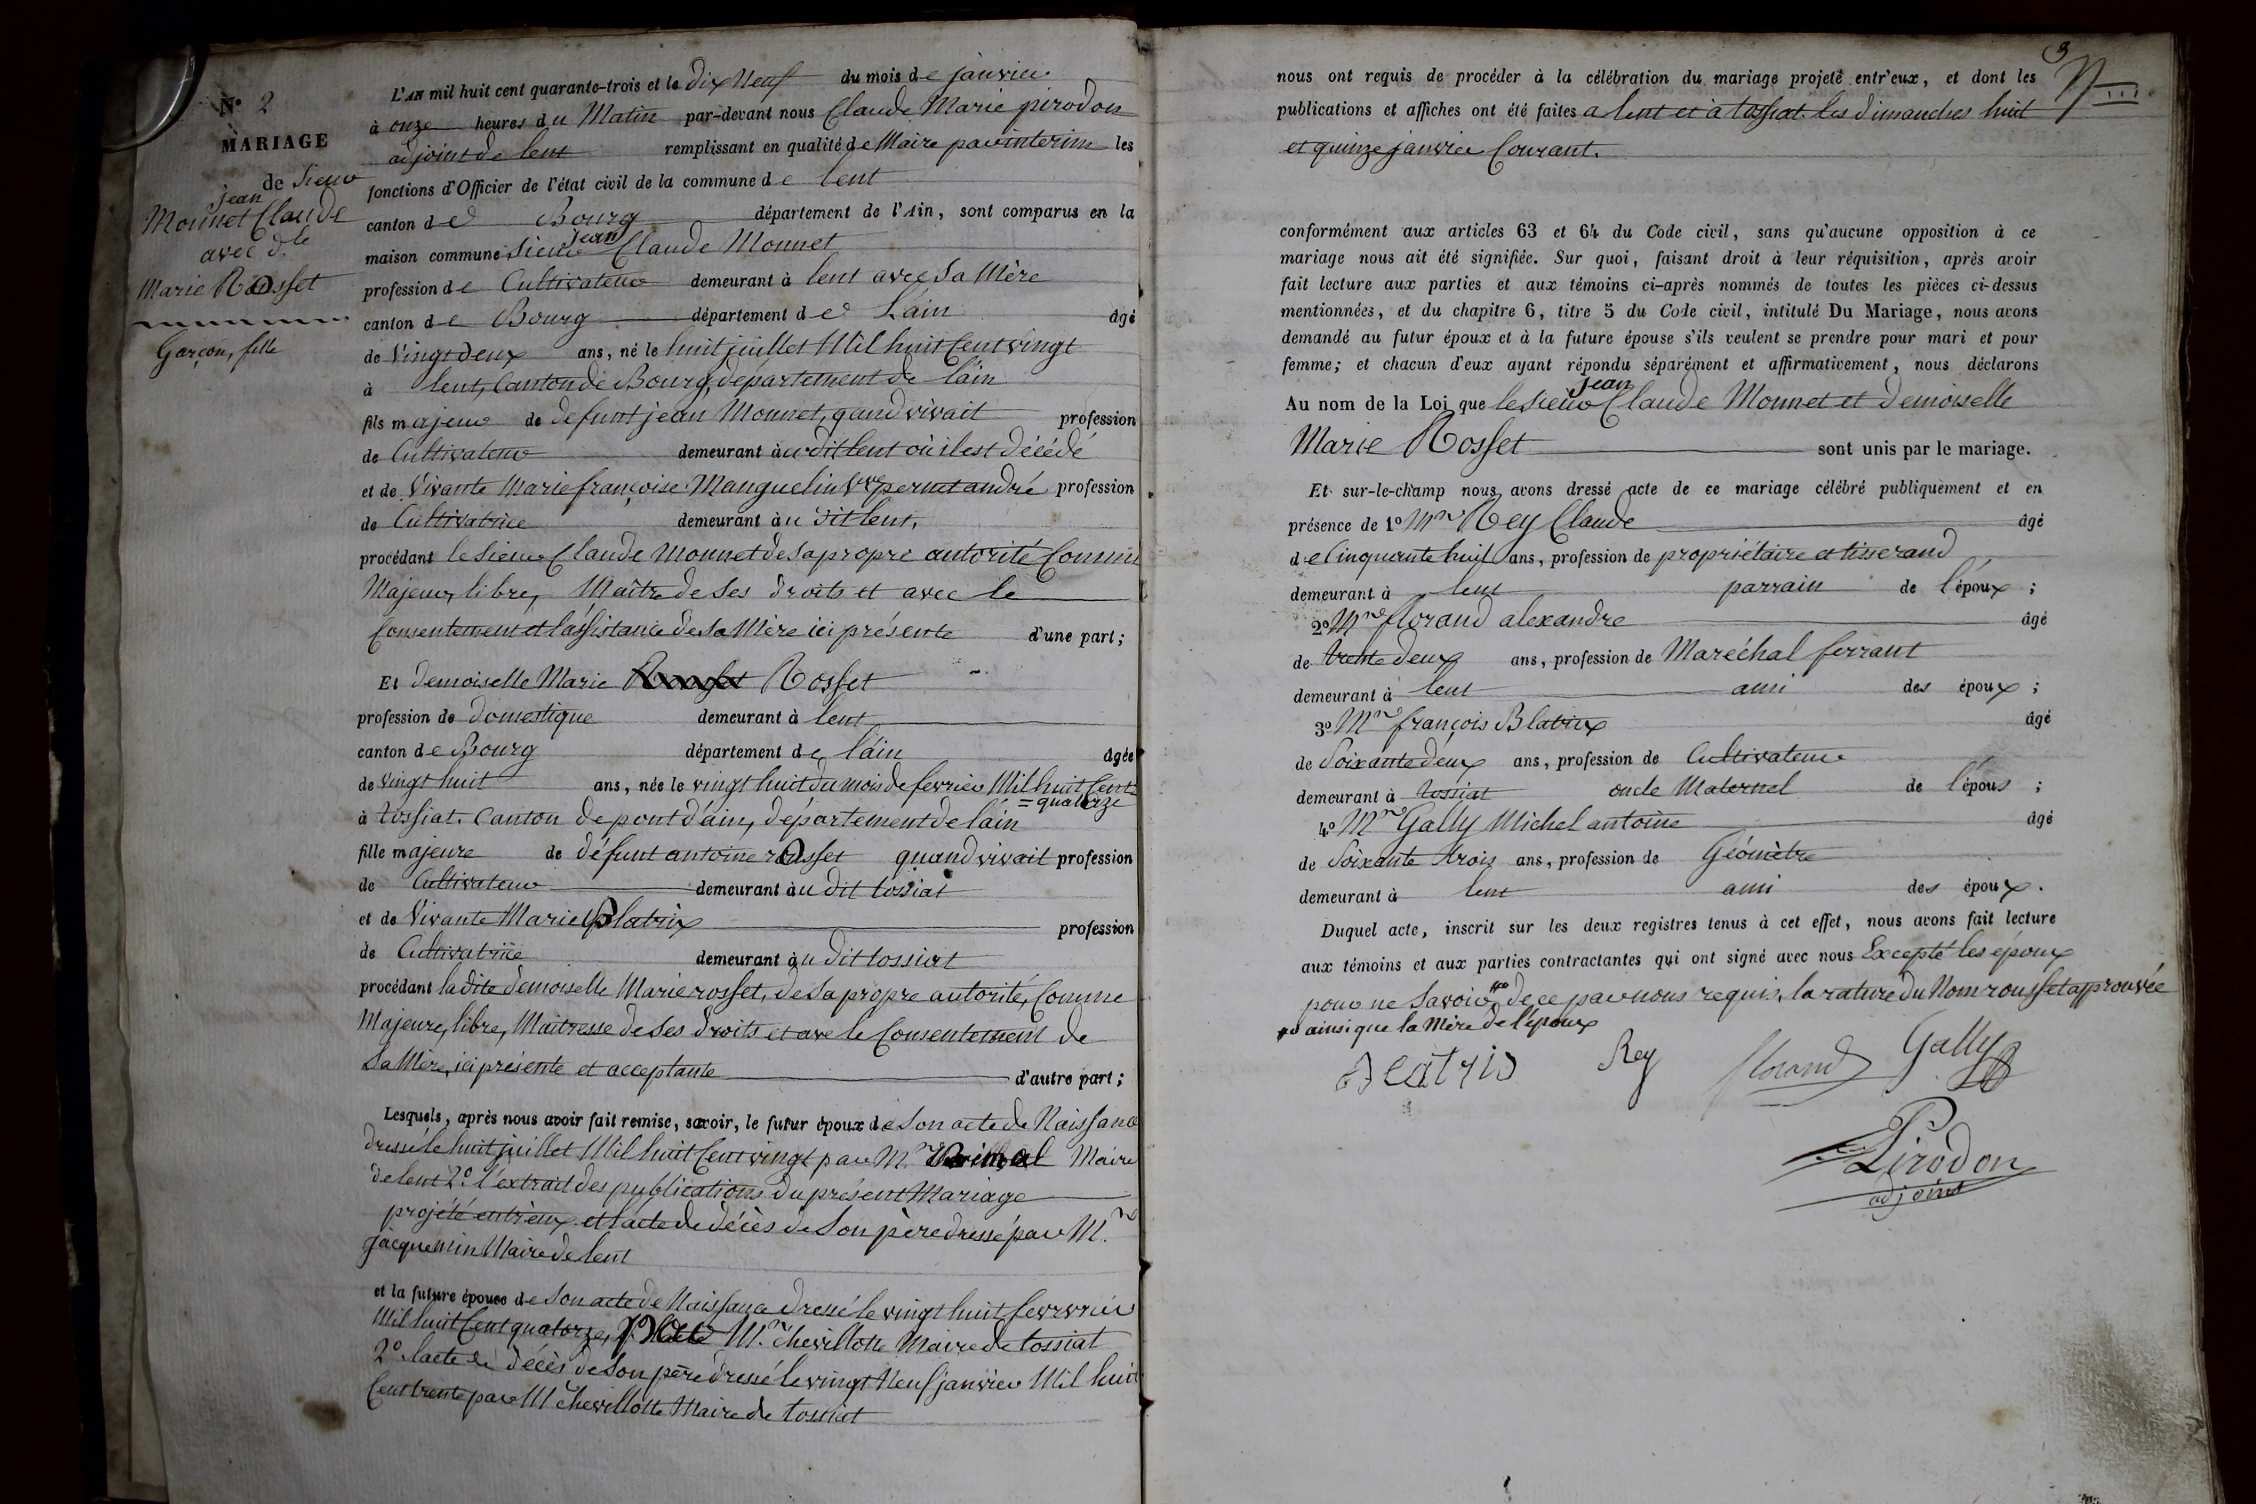 N° 2
MARIAGE
de Sieur
jean
Monnet Claude
avec d.le
Marie Rosset
Garçon, fille
L'AN mil huit cent quarante-trois et le dix Neuf du mois de janvier
à onze heures du Matin par-devant nous Claude Marie pirodon
adjoint de lent remplissant en qualité de Maire par interim les
fonctions d'Officier de l'état civil de la commune de lent
canton de Bourg département de l'Ain, sont comparus en la
jean
maison commune Sieur Claude Monnet
profession de Cultivateur demeurant à lent avec Sa Mère
canton de Bourg département de L'ain âgé
de Vingt deux ans, né le huit juillet Mil huit Cent vingt
à lent, Canton de Bourg, département de l'ain
fils majeur de defunt jean Monnet, qand vivait profession
de Cultivateur demeurant au dit lent où il est décédé
et de Vivante Marie françoise Manguelin Vve pernet andré profession
de Cultivatrice demeurant au dit lent,
procédant le Sieur Claude Monnet de Sa propre autorité Comme
Majeur, libre, Maître de Ses droits et avec le
Consentement et l'assistance de Sa Mère ici présente d'une part;
Et demoiselle Marie Rousset Rosset
profession de domestique demeurant à lent
canton de Bourg département de l'ain âgée
de vingt huit ans, née le vingt huit du mois de fevrier Mil huit Cent
= quatorze
à tossiat. Canton de pont d'ain, département de l'ain
fille majeure de défunt antoine rosset quand vivait profession
de Cultivateur demeurant au dit tossiat
et de Vivante Marie Blatrix profession
de Cultivatrice demeurant au dit tossiat
procédant la dite demoiselle Marie rosset, de Sa propre autorité, Comme
Majeure, libre, Maitresse de Ses droits et ave le Consentement de
Sa Mère, ici présente et acceptante d'autre part;
Lesquels, après nous avoir fait remise, savoir, le futur époux de Son acte de Naissance
dressé le huit juillet Mil huit Cent vingt par M.r Maire
de lent 2° l'extrait des publications du présent Mariage
projété entr'eux et l'acte de décès de Son père dressé par M.r
jacquemin Maire de lent
et la future épouse de Son acte de Naissance dressé le vingt huit fevrvrier
Mil huit Cent quatorze, M.r Chevillotte Maire de tossiat
2° l'acte de décès de Son père dressé le vingt Neuf janvier Mil huit
Cent trente par M Chevillotte Maire de tossiat
3
nous ont requis de procéder à la célébration du mariage projeté entr'eux, et dont les
publications et affiches ont été faites a lent et à tossiat les dimanches huit
et quinze janvier Courant.
conformément aux articles 63 et 64 du Code civil, sans qu'aucune opposition à ce
mariage nous ait été signifiée. Sur quoi, faisant droit à leur réquisition, après avoir
fait lecture aux parties et aux témoins ci-après nommés de toutes les pièces ci-dessus
mentionnées, et du chapitre 6, titre 5 du Code civil, intitulé Du Mariage, nous avons
demandé au futur époux et à la future épouse s'ils veulent se prendre pour mari et pour
femme; et chacun d'eux ayant répondu séparément et affirmativement, nous déclarons
jean
Au nom de la Loi que le Sieur Claude Monnet et demoiselle
Marie Rosset sont unis par le mariage.
Et sur-le-champ nous avons dressé acte de ce mariage célébré publiquement et en
présence de 1° Mr Rey Claude âgé
de Cinquante huit ans, profession de propriétaire et tisserand
demeurant à lent parrain de l'époux;
2° Mr florand alexandre âgé
de trente deux ans, profession de Maréchal ferrant
demeurant à lent ami des époux;
3° Mr françois Blatrix âgé
de Soixante deux ans, profession de Cultivateur
demeurant à tossiat oncle Maternel de l'épous;
4° Mr Gally Michel antoine âgé
de Soixante trois ans, profession de Géomètre
demeurant à lent ami des époux.
Duquel acte, inscrit sur les deux registres tenus à cet effet, nous avons fait lecture
aux témoins et aux parties contractantes qui ont signé avec nous Excepté les époux
pour ne Savoir de ce par nous requis, la rature du Nom rousset approuvée
ainsi que la Mère de l'époux
Rey
florand
Gally
Pirodon
adjoint